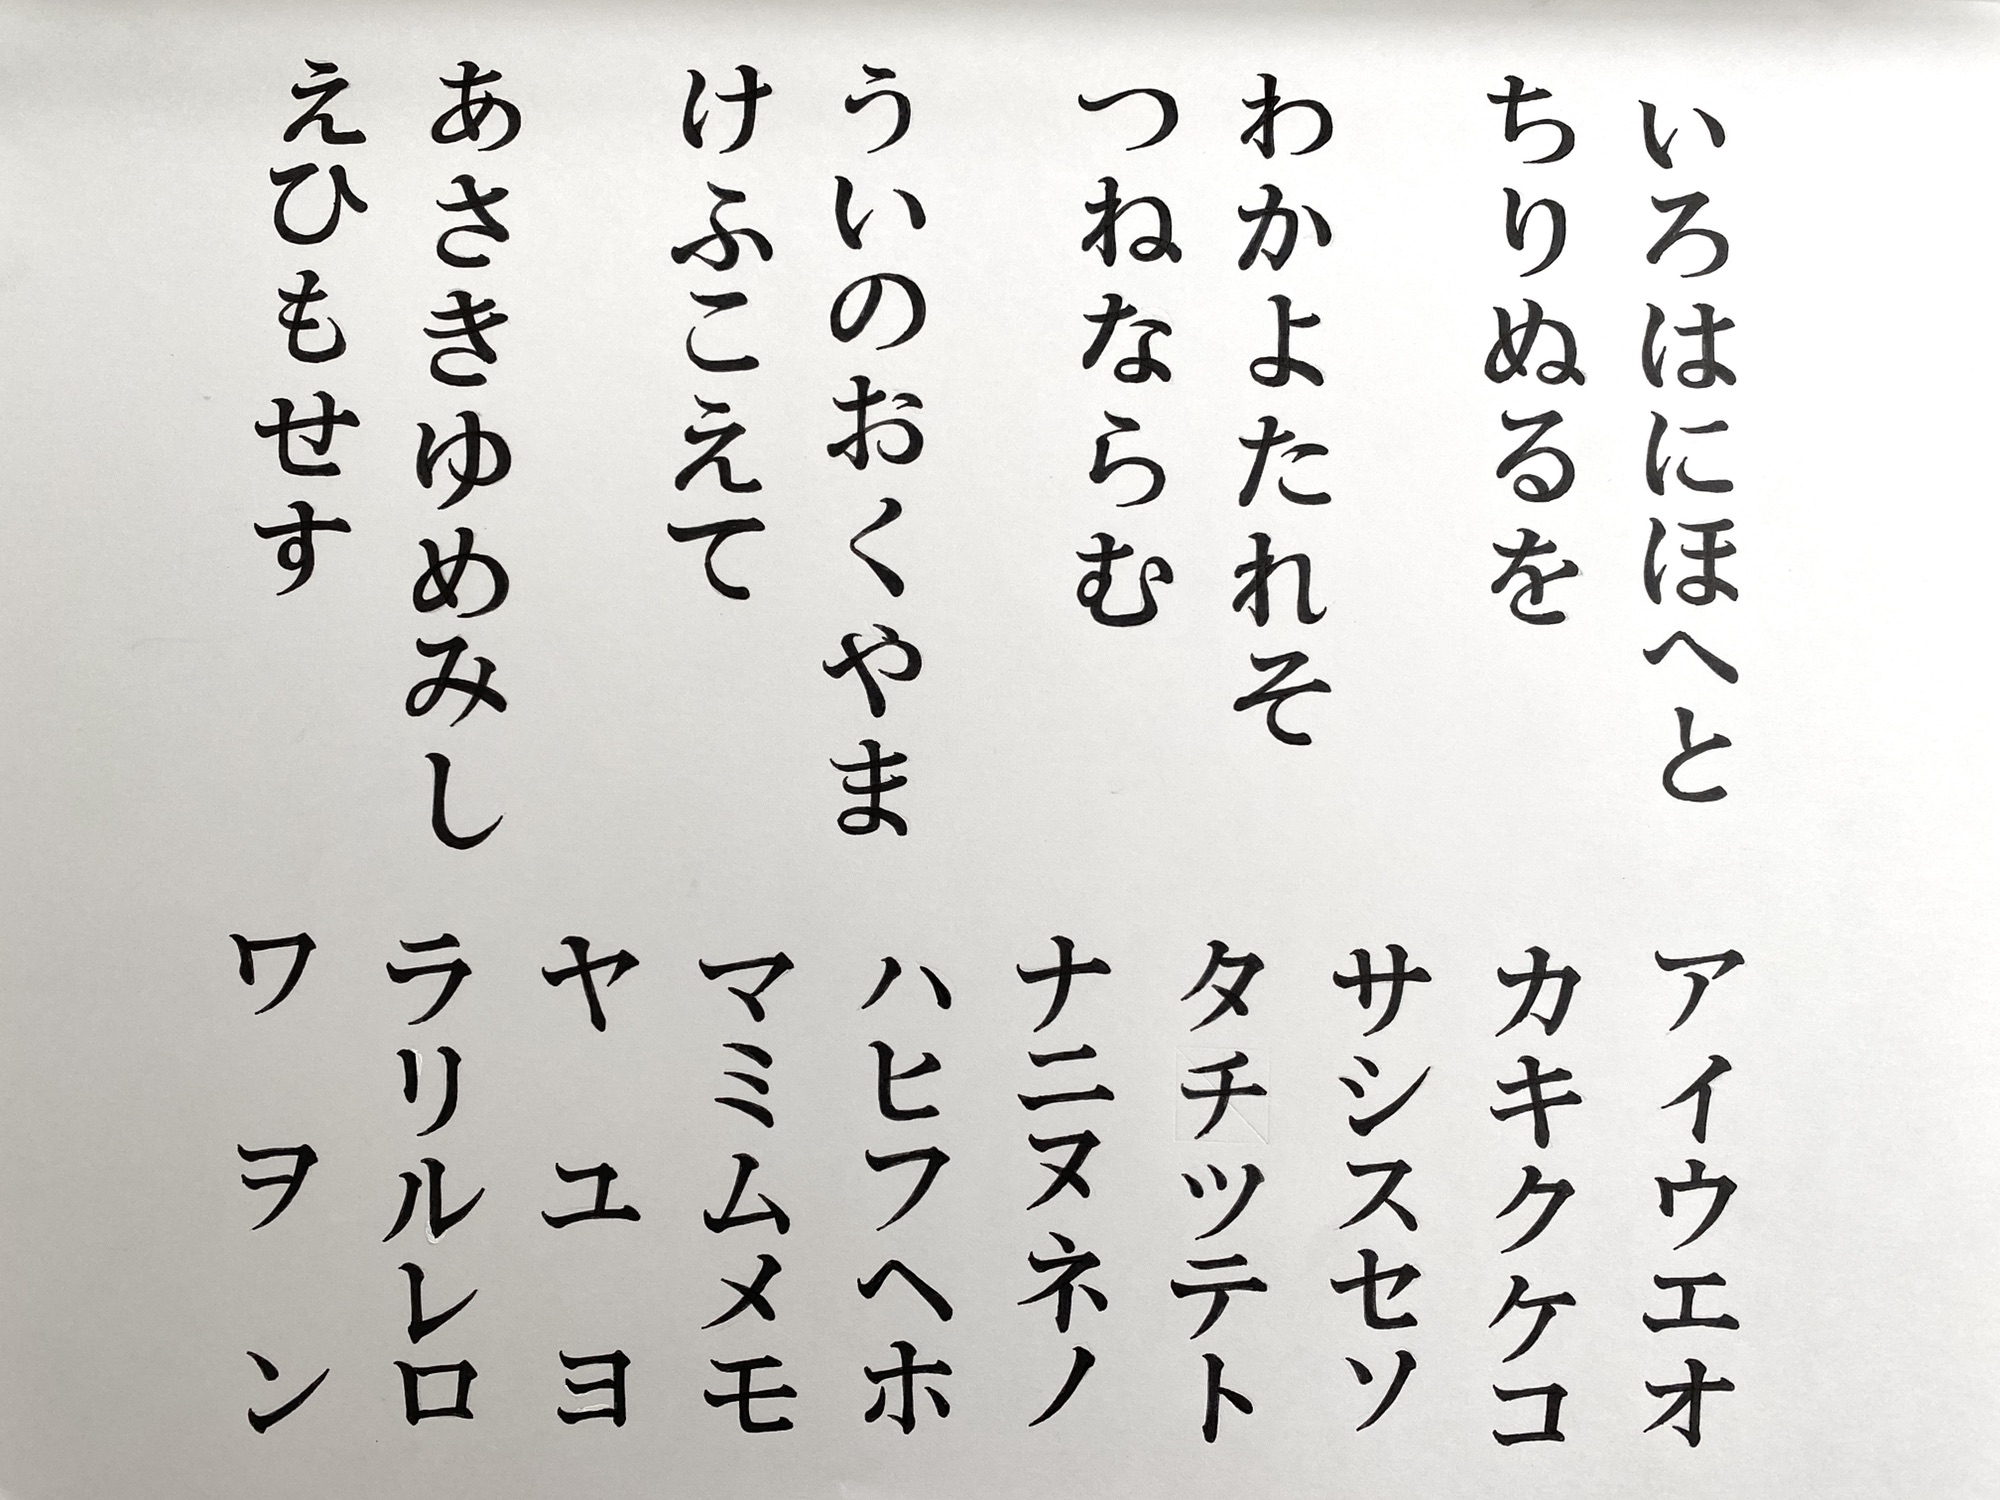 いろはにほへと
ちりぬるを
わかよたれそ
つねならむ
ういのおくやま
けふこえて
あさきゆめみし
えひもせす
アイウエオ
カキクケコ
サシスセソ
タチツテト
ナニヌネノ
ハヒフヘホ
マミムメモ
ヤユヨ
ラリルレロ
ワヲン